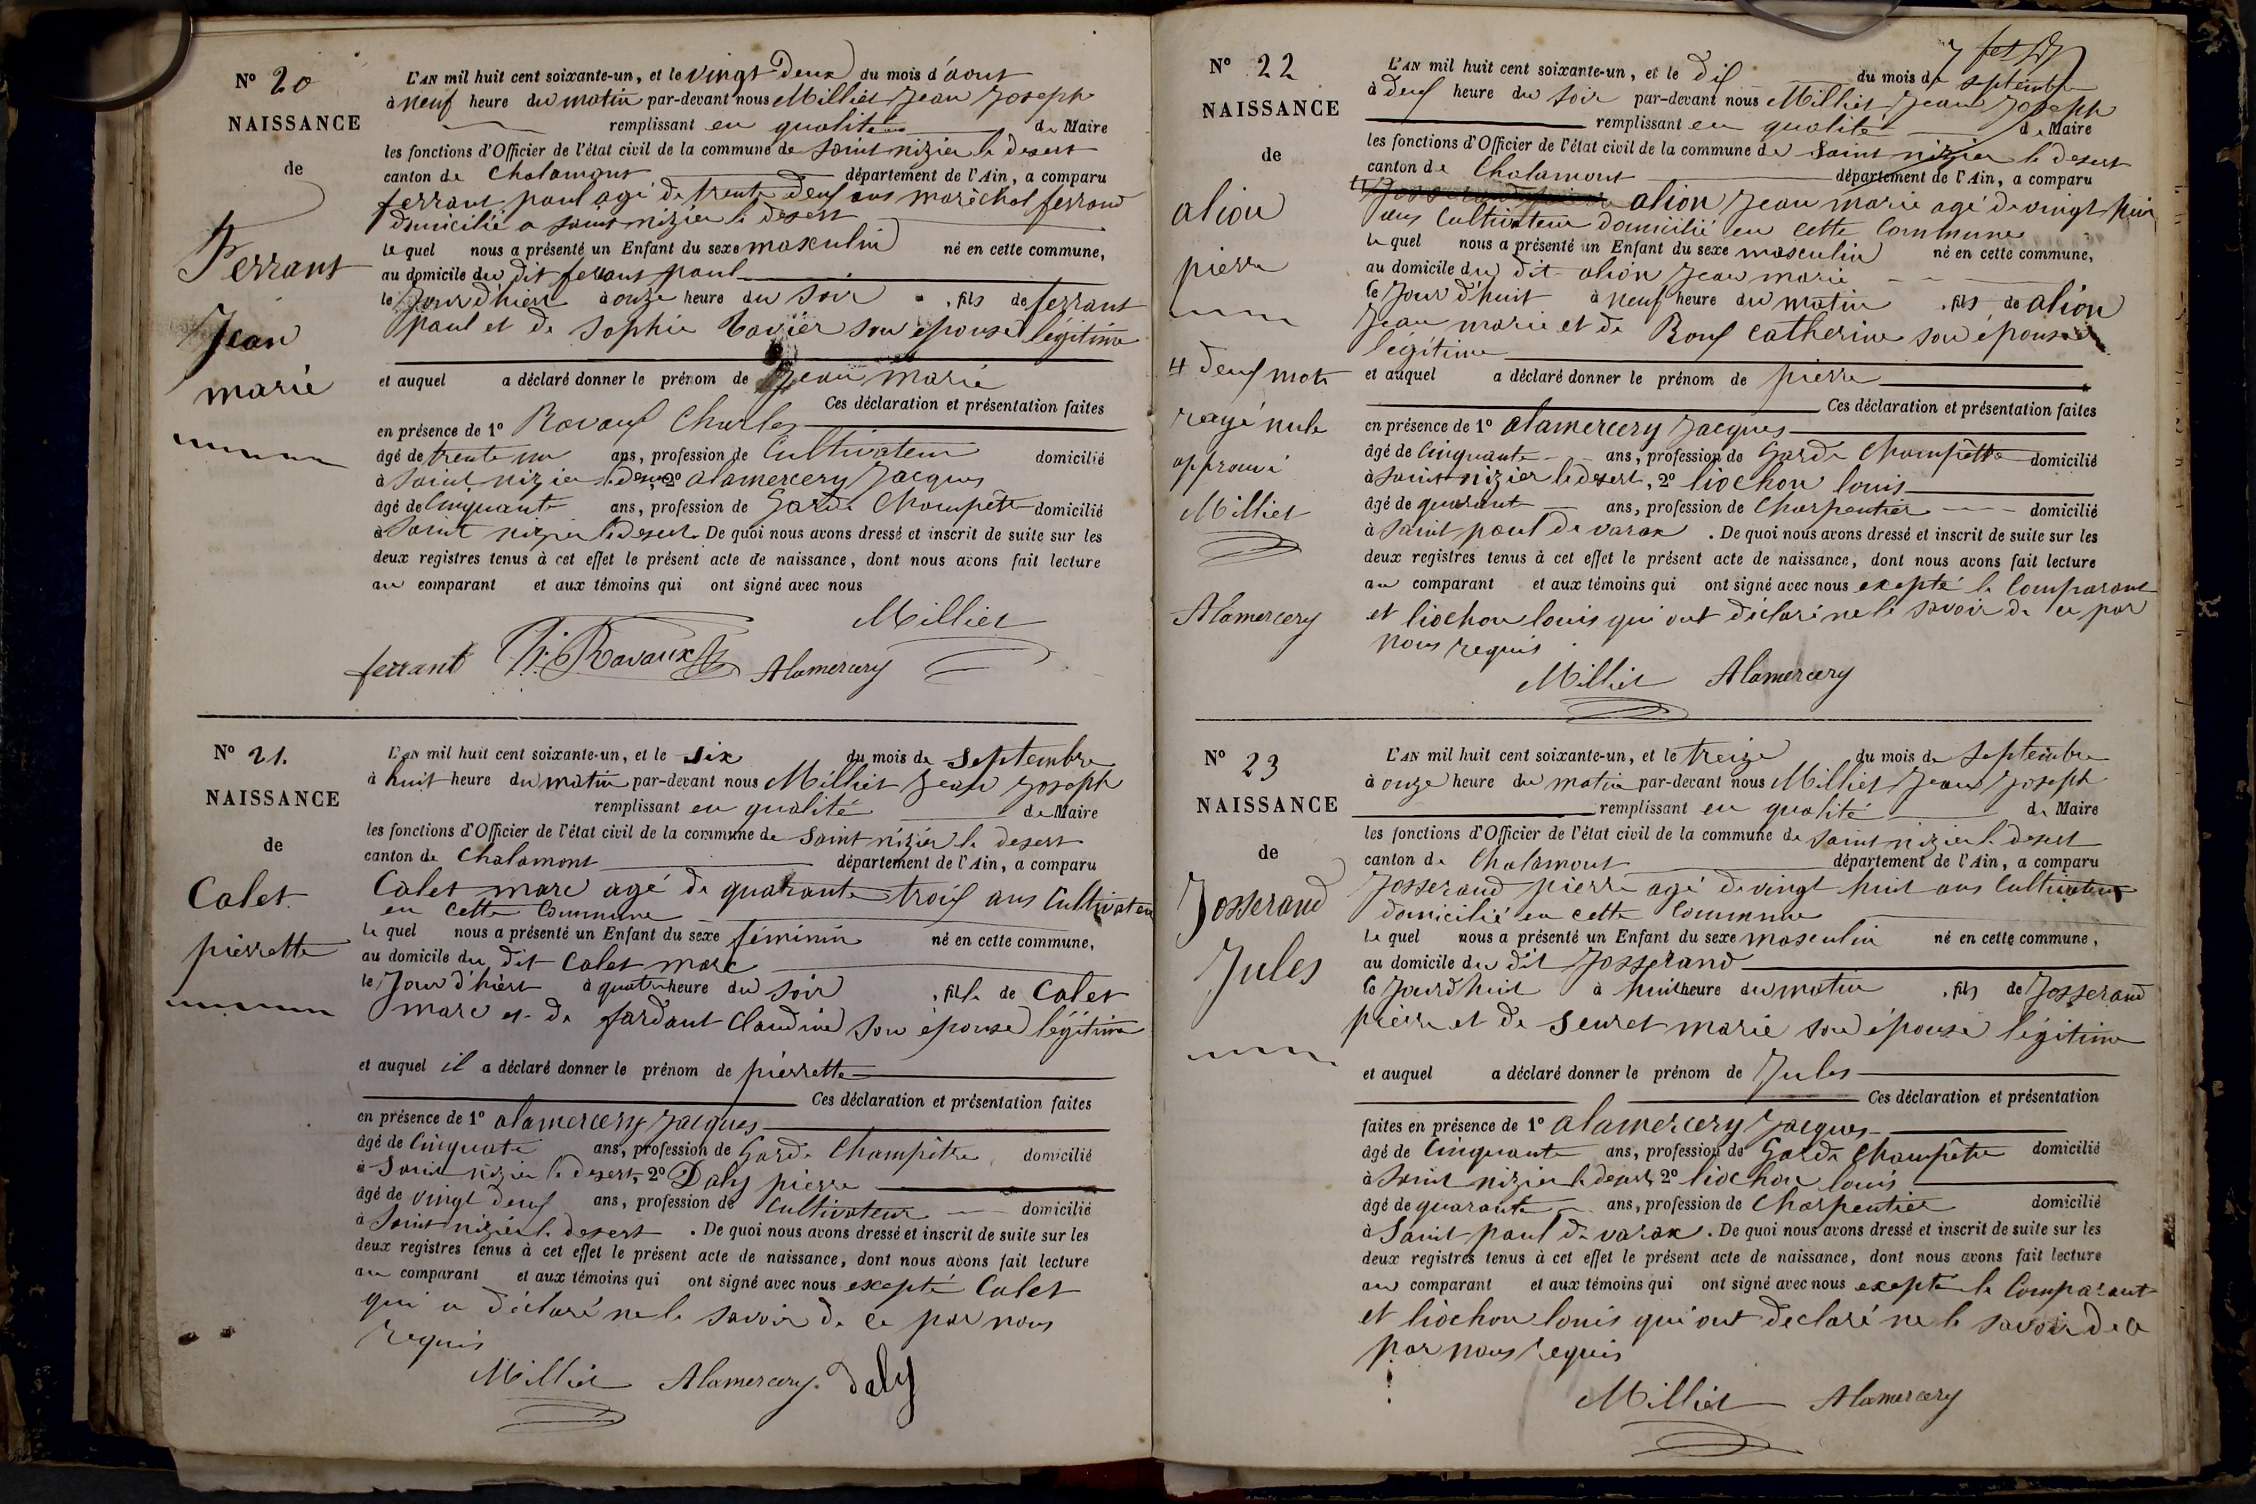 N° 20
NAISSANCE
de
Ferrant
Jean
marie
L'AN mil huit cent soixante-un, et le vingt deux du mois d'aout
à neuf heure du matin par-devant nous Milliet Jean Joseph
remplissant en qualité de Maire
les fonctions d'Officier de l'état civil de la commune de saint nizier le desert
canton de Chalamont département de l'Ain, a comparu
ferrant paul agé de trente deux ans maréchal ferrand
domicilié a saint nizier le desert
le quel nous a présenté un Enfant du sexe masculin né en cette commune,
au domicile du dit ferrant paul
le Jour d'hier à onze heure du soir , fils de ferrant
paul et de sophie son épouse légitime
et auquel a déclaré donner le prénom de Jean marie
Ces déclaration et présentation faites
en présence de 1° Ravaux Charles
âgé de trente un ans, profession de Cultivateur domicilié
à saint nizier le desert, 2° alamercery Jacques
âgé de Cinquante ans, profession de Garde Champêtre domicilié
à saint nizier le desert. De quoi nous avons dressé et inscrit de suite sur les
deux registres tenus à cet effet le présent acte de naissance, dont nous avons fait lecture
au comparant et aux témoins qui ont signé avec nous
Milliet
ferrant Ravaux Alamercery
N° 21.
NAISSANCE
de
Calet
pierrette
L'AN mil huit cent soixante-un, et le six du mois de septembre
à huit heure du matin par-devant nous Milliet Jean Joseph
remplissant en qualité de Maire
les fonctions d'Officier de l'état civil de la commune de saint nizier le desert
canton de Chalamont département de l'Ain, a comparu
Calet marc agé de quarante trois ans Cultivateur
en cette Commune
le quel nous a présenté un Enfant du sexe féminin né en cette commune,
au domicile du dit Calet marc
le Jour d'hièrt à quatre heure du soir , fille de Calet
marc et de fardant Claudine son épouse légitime
et auquel il a déclaré donner le prénom de pierrette
Ces déclaration et présentation faites
en présence de 1° alamercery Jacques
âgé de Cinquate ans, profession de Garde Champêtre domicilié
à saint nizier le desert, 2° Daly pierre
âgé de vingt deux ans, profession de Cultivateur domicilié
à saint nizier le desert. De quoi nous avons dressé et inscrit de suite sur les
deux registres tenus à cet effet le présent acte de naissance, dont nous avons fait lecture
au comparant et aux témoins qui ont signé avec nous excepté Calet
qui a déclaré ne le savoir de ce par nous
requis
Milliet Alamercery. Daly
N° 22
NAISSANCE
de
alion
pierre
# deux mots
rayé nule
approuvé
Milliet
Alamercery
L'AN mil huit cent soixante-un, et le dix du mois de septembre
à deux heure du soir par-devant nous Milliet Jean Joseph
remplissant en qualité de Maire
les fonctions d'Officier de l'état civil de la commune de saint nizier le desert
canton de Chalamont département de l'Ain, a comparu
# alion Jean marie agé de vingt huit
ans Cultivateur domicilié en cette Commune
le quel nous a présenté un Enfant du sexe masculin né en cette commune,
au domicile du dit alion Jean marie
le Jour d'huit à neuf heure du matin , fils de alion
Jean marie et de Roux Catherine son épouse
légitime
et auquel a déclaré donner le prénom de pierre
Ces déclaration et présentation faites
en présence de 1° alamercery Jacques
âgé de Cinquante ans, profession de Garde Champêtre domicilié
à saint nizier le desert, 2° liochon louis
âgé de quarante ans, profession de Charpentier domicilié
à saint paul de varax. De quoi nous avons dressé et inscrit de suite sur les
deux registres tenus à cet effet le présent acte de naissance, dont nous avons fait lecture
au comparant et aux témoins qui ont signé avec nous excepté le Comparant
et liochon louis qui ont déclaré ne le savoir de ce par
nous requis
Milliet Alamercery
N° 23
NAISSANCE
de
Josserand
Jules
L'AN mil huit cent soixante-un, et le treize du mois de septembre
à onze heure du matin par-devant nous Milliet Jean Joseph
remplissant en qualité de Maire
les fonctions d'Officier de l'état civil de la commune de saint nizier le desert
canton de Chalamont département de l'Ain, a comparu
Josserand pierre agé de vingt huit ans Cultivateur
domicilié en cette Commune
le quel nous a présenté un Enfant du sexe masculin né en cette commune,
au domicile du dit Josserand
le Jourd'huit à huit heure du matin , fils de Josserand
pierre et de seuret marie son épouse légitime
et auquel a déclaré donner le prénom de Jules
Ces déclaration et présentation
faites en présence de 1° alamercery Jacques
âgé de Cinquante ans, profession de Garde Champêtre domicilié
à saint nizier le desert, 2° liochon louis
âgé de quarante ans, profession de Charpentier domicilié
à Saint paul de varax. De quoi nous avons dressé et inscrit de suite sur les
deux registres tenus à cet effet le présent acte de naissance, dont nous avons fait lecture
au comparant et aux témoins qui ont signé avec nous excepté le Comparant
et liochon louis qui ont declaré ne le savoir de ce
par nous requis
Milliet Alamercery